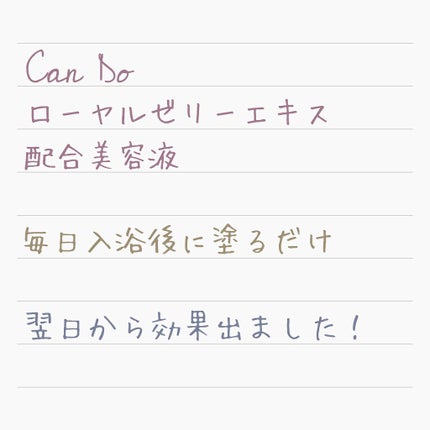 Can Do
ローヤルゼリーエキス
配合美容液
毎日入浴後に塗るだけ
翌日から効果出ました！